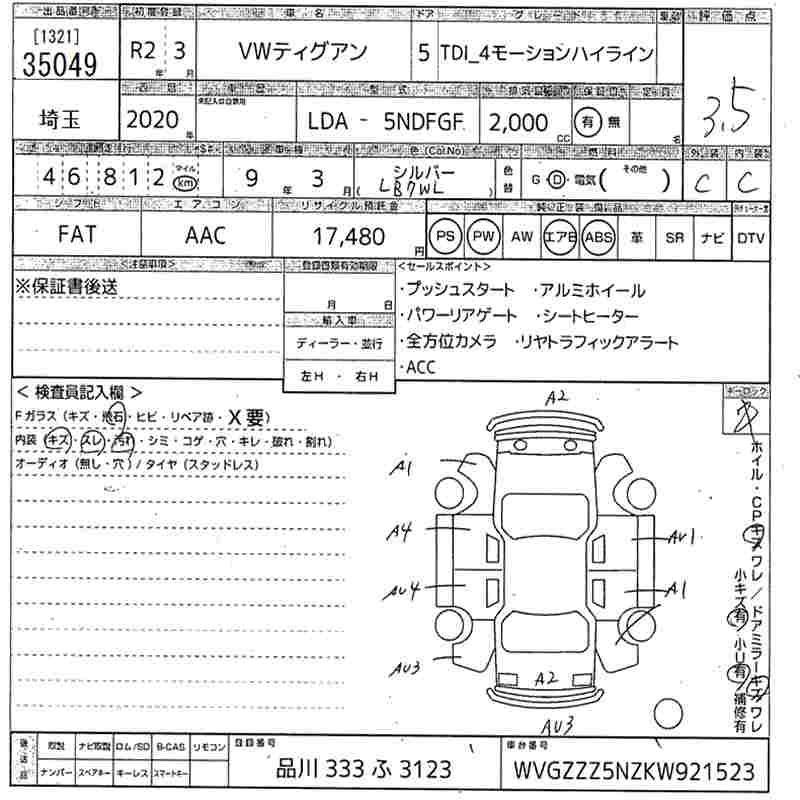 出品番号 初度登録 車名 ドア グレード 車歴 評価点
[1321]
35049 R2年 3月 VWティグアン 5 TDI_4モーションハイライン 3.5
埼玉 2020年 型式 LDA - 5NDFGF 排気量 2,000 CC 有 無 名
46812 マイル km 車検 9年 3月 色(Col.No) シルバー LB7WL 色替 燃料 G・D・電気( その他 ) 外装 C 内装 C
シフト エアコン リサイクル預託金 純正装備品
FAT AAC 17,480円 PS PW AW エアB ABS 革 SR ナビ DTV
<注意事項> 登録書類有効期限 <セールスポイント>
※保証書後送 月 日 ・プッシュスタート ・アルミホイール
輸入車 ・パワーリアゲート ・シートヒーター
ディーラー・並行 ・全方位カメラ ・リヤトラフィックアラート
左H ・ 右H ・ACC
< 検査員記入欄 > キーロック
Fガラス (キズ・飛石・ヒビ・リペア跡・X要)
内装 (キズ・スレ・汚れ・シミ・コゲ・穴・キレ・破れ・割れ)
オーディオ (無し・穴) / タイヤ (スタッドレス)
A2
A1
A4 AU1
AU4 A1
AU3
A2
AU3
ホイル・CPキズワレ/ドアミラーキズワレ
小キズ有/小U有/補修有
後送品 取説 ナビ取説 ロム/SD B-CAS リモコン 登録番号 車台番号
ナンバー スペアキー キーレス スマートキー 品川 333 ふ 3123 WVGZZZ5NZKW921523